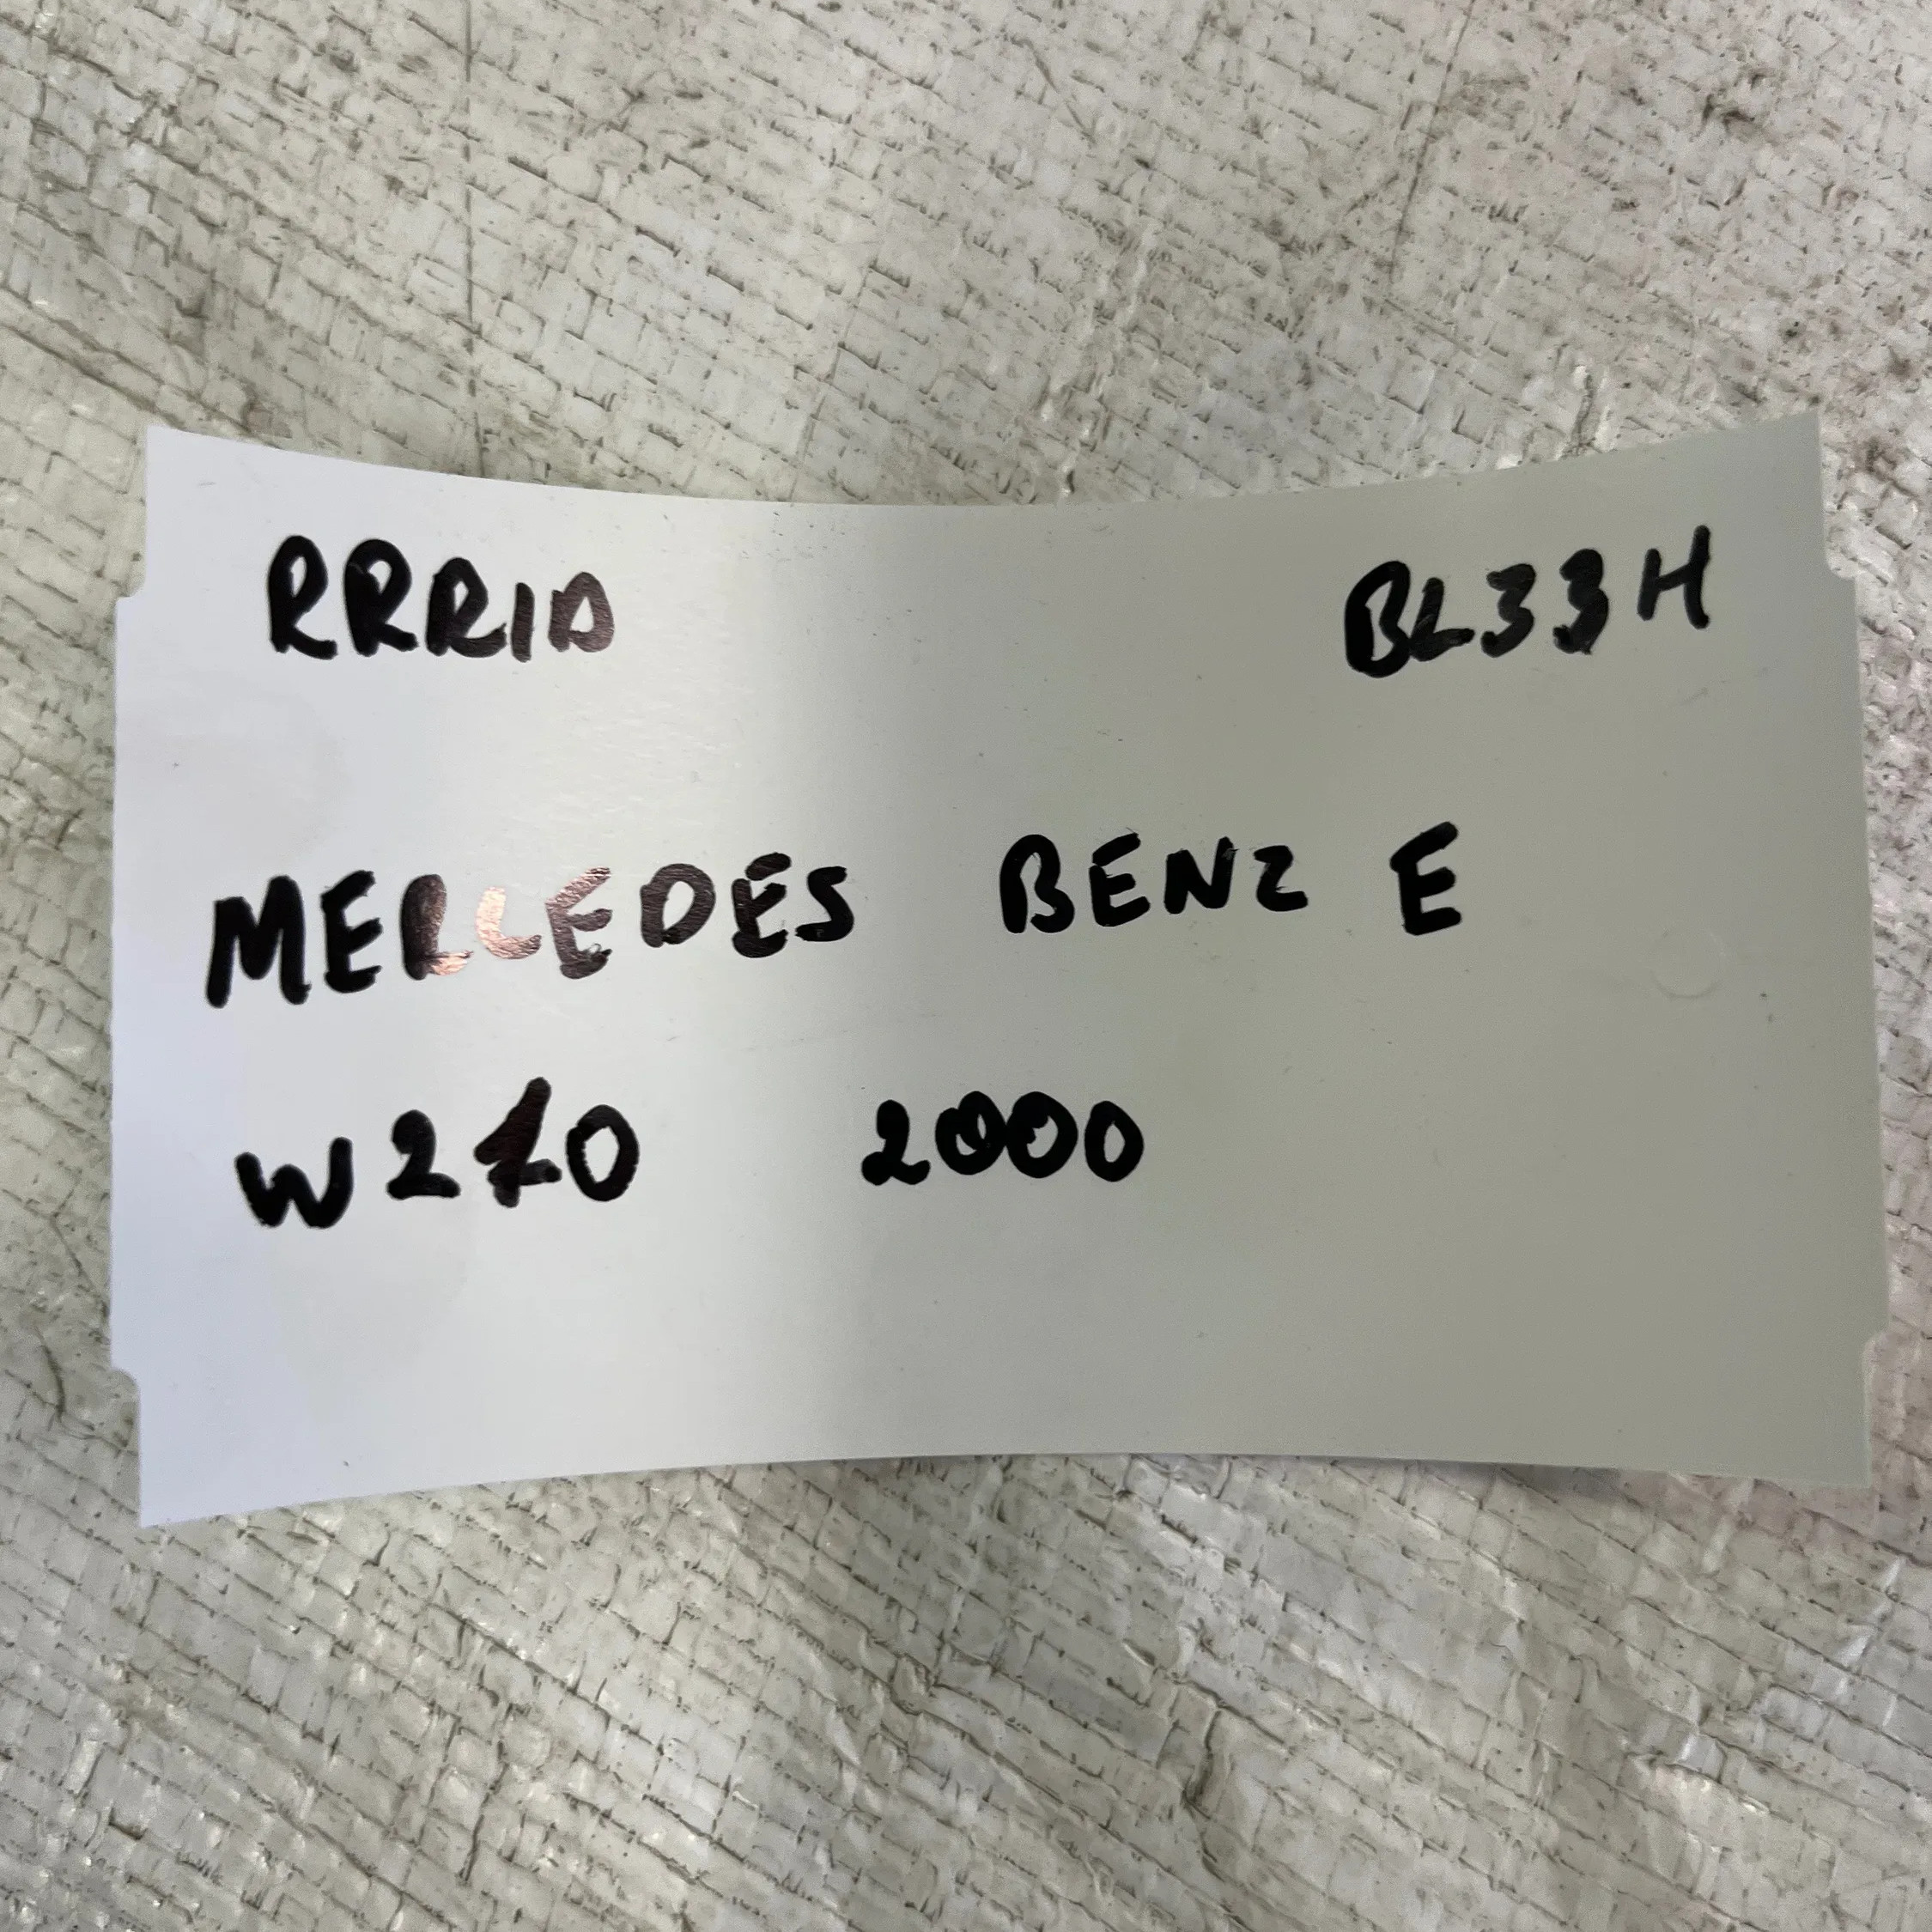 RRRID BL33H
MERCEDES BENZ E
W210 2000